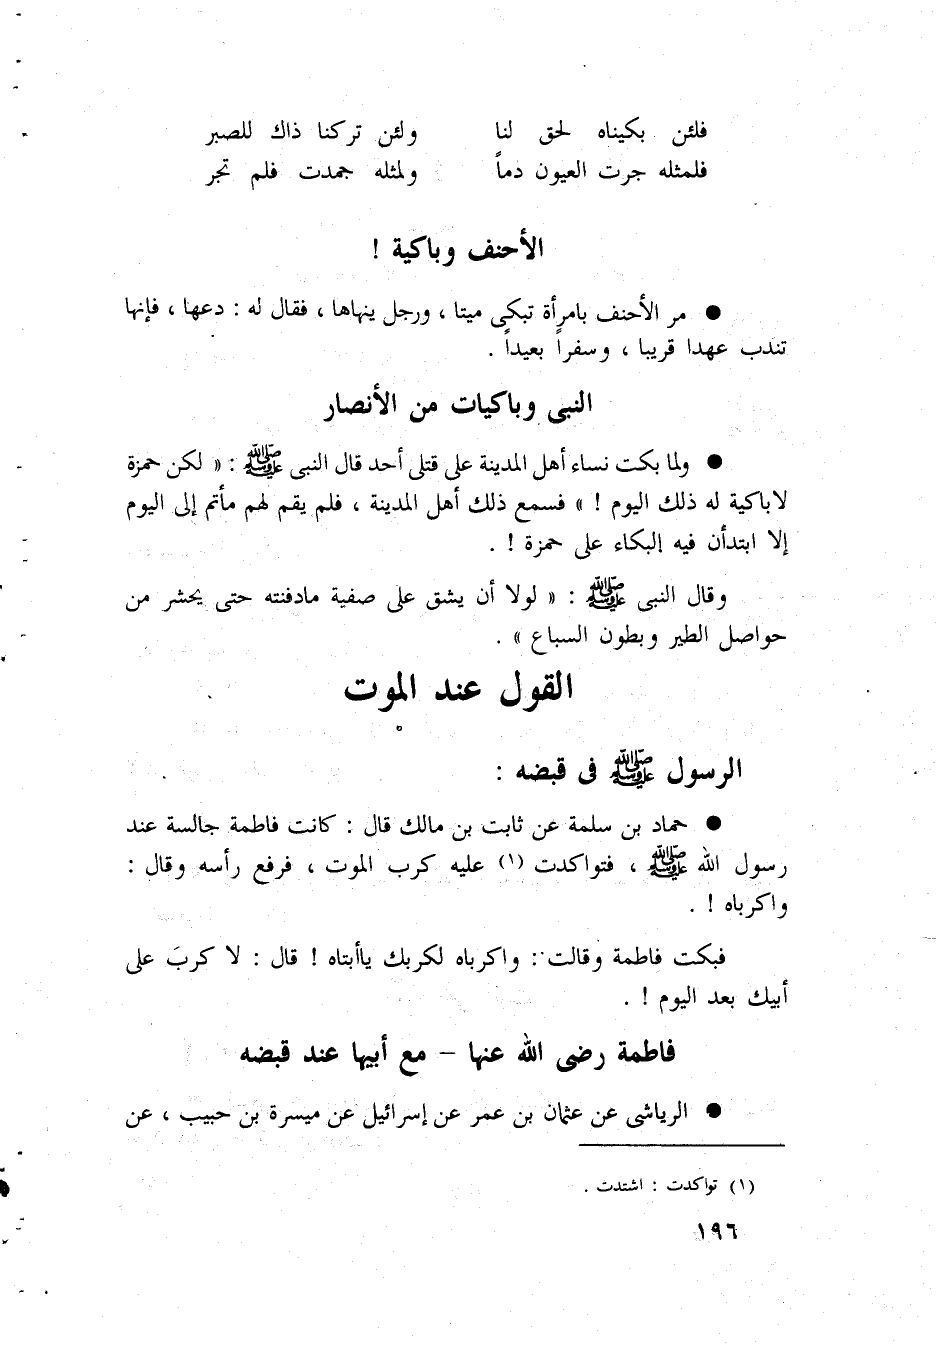 فلئن بكيناه لحق لنا ولئن تركنا ذاك للصبر
فلمثله جرت العيون دماً ولمثله جمدت فلم تجر
الأحنف وباكية !
● مر الأحنف بامرأة تبكى ميتا ، ورجل ينهاها ، فقال له : دعها ، فإنها
تندب عهدا قريبا ، وسفراً بعيداً .
النبى وباكيات من الأنصار
● ولما بكت نساء أهل المدينة على قتلى أحد قال النبى ﷺ : « لكن حمزة
لاباكية له ذلك اليوم ! » فسمع ذلك أهل المدينة ، فلم يقم لهم مأتم إلى اليوم
إلا ابتدأن فيه البكاء على حمزة ! .
وقال النبى ﷺ : « لولا أن يشق على صفية مادفنته حتى يحشر من
حواصل الطير وبطون السباع » .
القول عند الموت
الرسول ﷺ فى قبضه :
● حماد بن سلمة عن ثابت بن مالك قال : كانت فاطمة جالسة عند
رسول الله ﷺ ، فتواكدت (١) عليه كرب الموت ، فرفع رأسه وقال :
واكرباه ! .
فبكت فاطمة وقالت : واكرباه لكربك ياأبتاه ! قال : لا كربَ على
أبيك بعد اليوم ! .
فاطمة رضى الله عنها – مع أبيها عند قبضه
● الرياشى عن عثمان بن عمر عن إسرائيل عن ميسرة بن حبيب ، عن
(١) تواكدت : اشتدت .
١٩٦